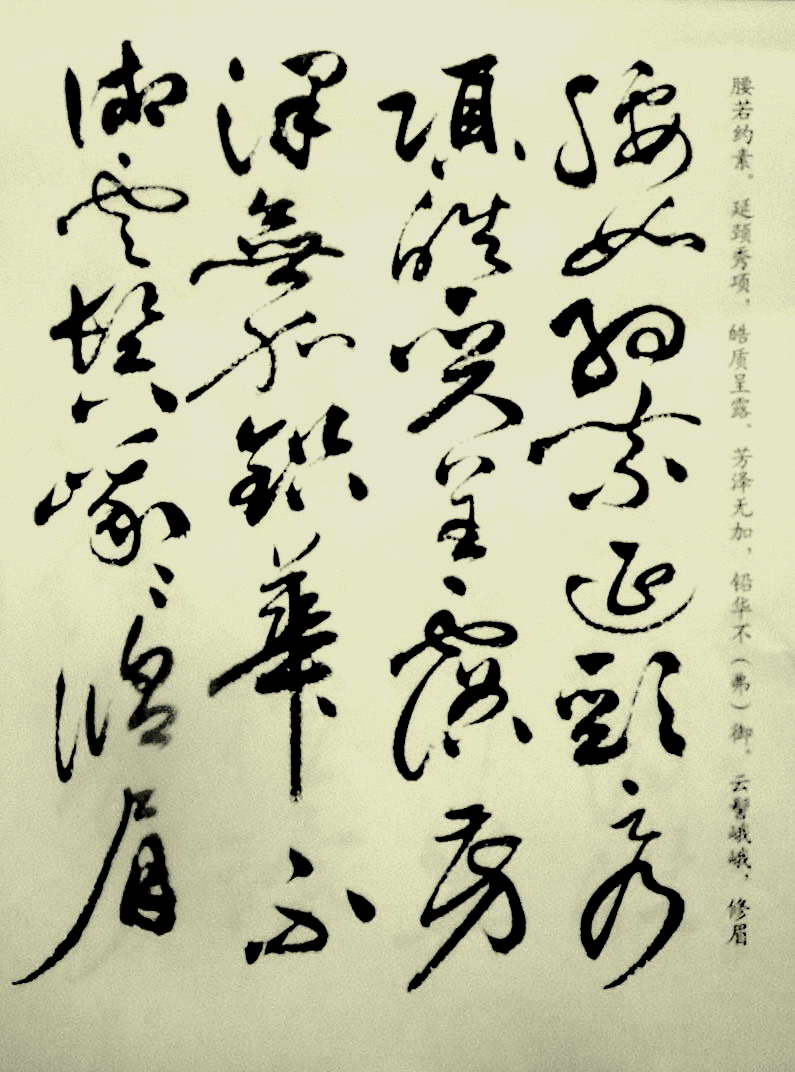 腰若约素。延颈秀项，皓质呈露、芳泽无加，铅华不（弗）御。云髻峨峨、修眉
腰如約素延頸秀
項皓質呈露芳
澤無加鉛華不
御雲髻峨〻脩眉